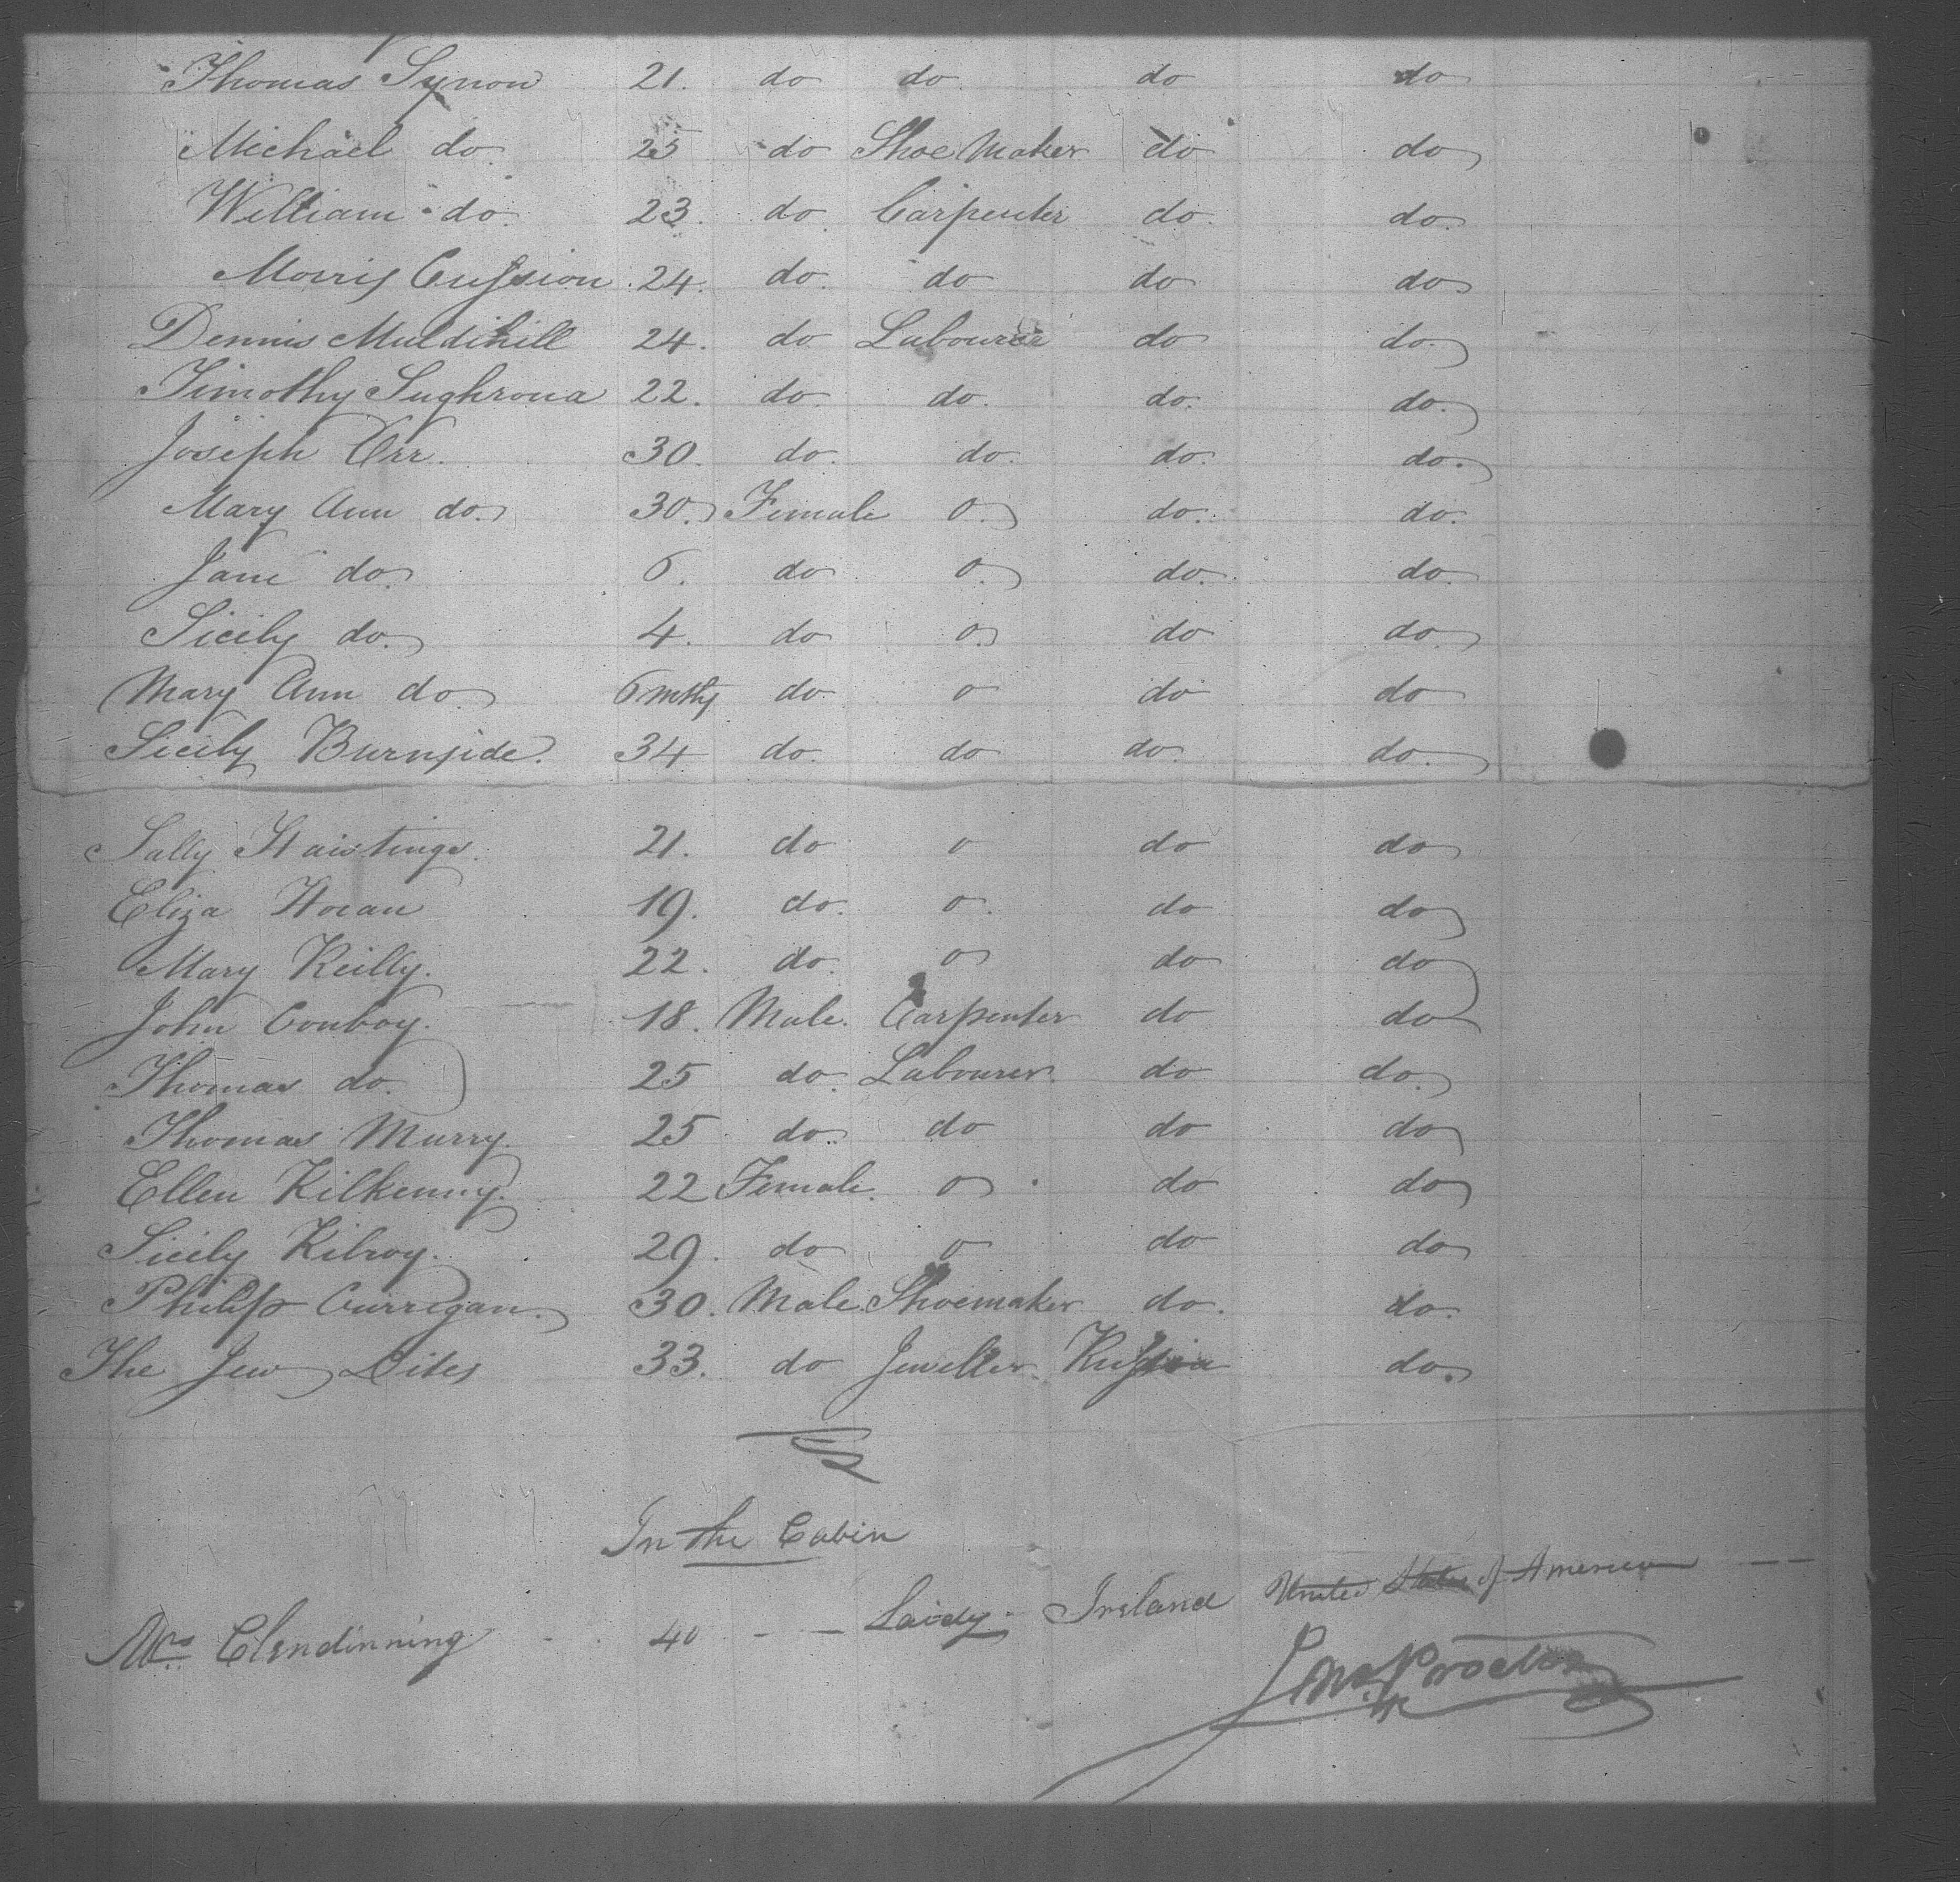 Thomas Synon 21. do do do do
Michael do. 25 do Shoe Maker do do
William do. 23. do. Carpenter do. do.
Morris Cussion 24. do. do do do
Dennis Muldihill 24. do Labourer do do.
Timothy Sughroua 22. do. do. do. do.
Joseph Orr. 30. do. do. do. do.
Mary Ann do. 30. Female o. do. do.
Jane do. 6. do o. do. do.
Sicily do. 4. do o. do do.
Mary Ann do 6 mths do. o do do
Sicily Burnside. 34 do. do do. do.
Sally Haistings. 21. do o do do
Eliza Horan 19. do. o. do do
Mary Keilly. 22. do. o do do
John Conboy. 18. Male. Carpenter do do
Thomas do. 25 do. Labourer. do do.
Thomas Murry. 25 do. do do do
Ellen Kilkenny. 22 Female. o do do
Sicily Kilroy. 29. do o do do
Philip Currigan. 30. Male Shoemaker do. do.
The Jew Dites 33. do Jeweller. Russia do.
In the Cabin
Mrs Clendinning - . 40 - - Laidy. Ireland United States of America - -
Proctor